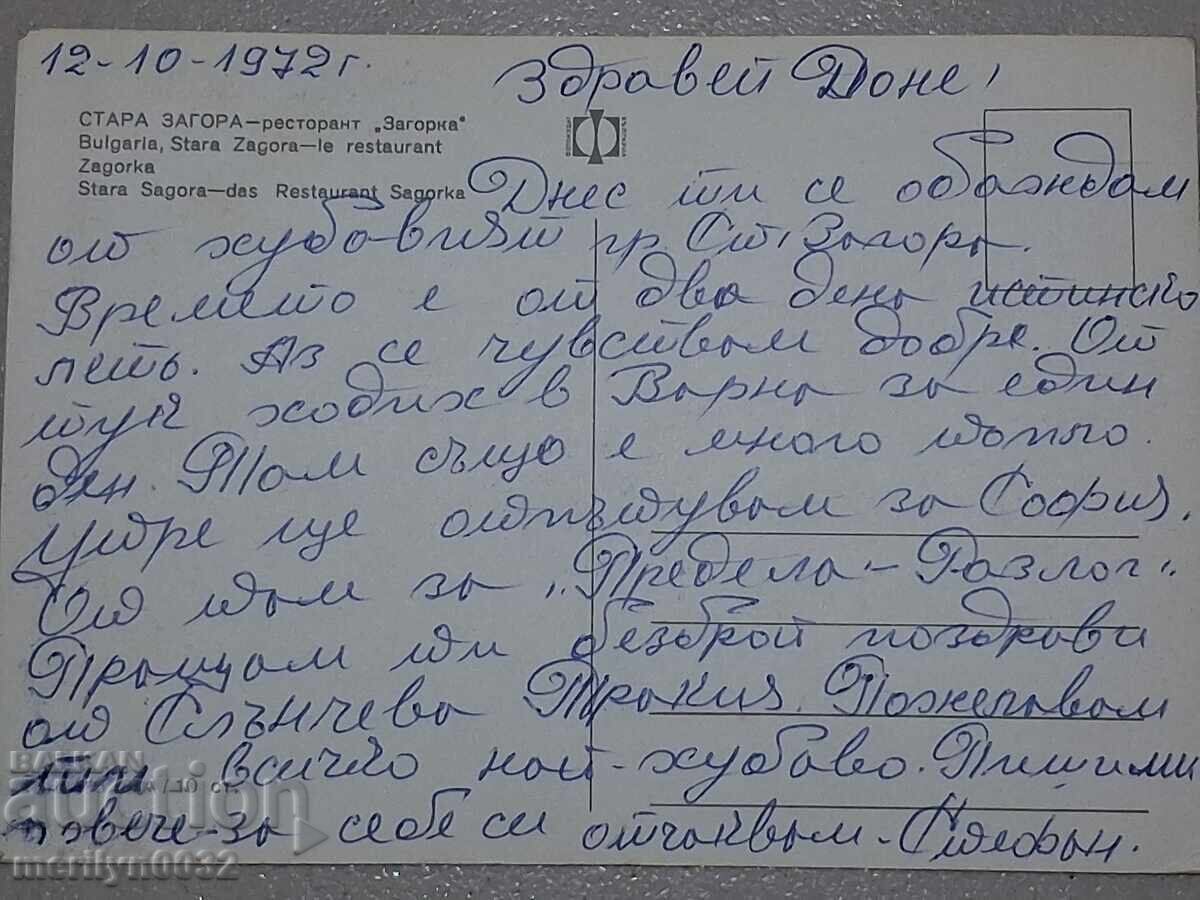 12-10-1972 г.
Здравей Доне!
СТАРА ЗАГОРА—ресторант „Загорка“
Bulgaria, Stara Zagora—le restaurant
Zagorka
Stara Sagora—das Restaurant Sagorka
Днес ти се обаждам
от хубавият гр. Ст. Загора.
Времето е от два дена истинско
лето. Аз се чувствам добре. От
туй ходих в Варна за един
ден. Там също е много топло.
Утре ще отпътувам за София.
От там за „Предела“ – Разлог“.
Пращам ти безброй поздрави
от Слънчева Тракия. Пожелавам
ти всичко най-хубаво. Пиши ми
повече за себе си отчаквам – Стефан.
BALKAN
auction
merilyn0032